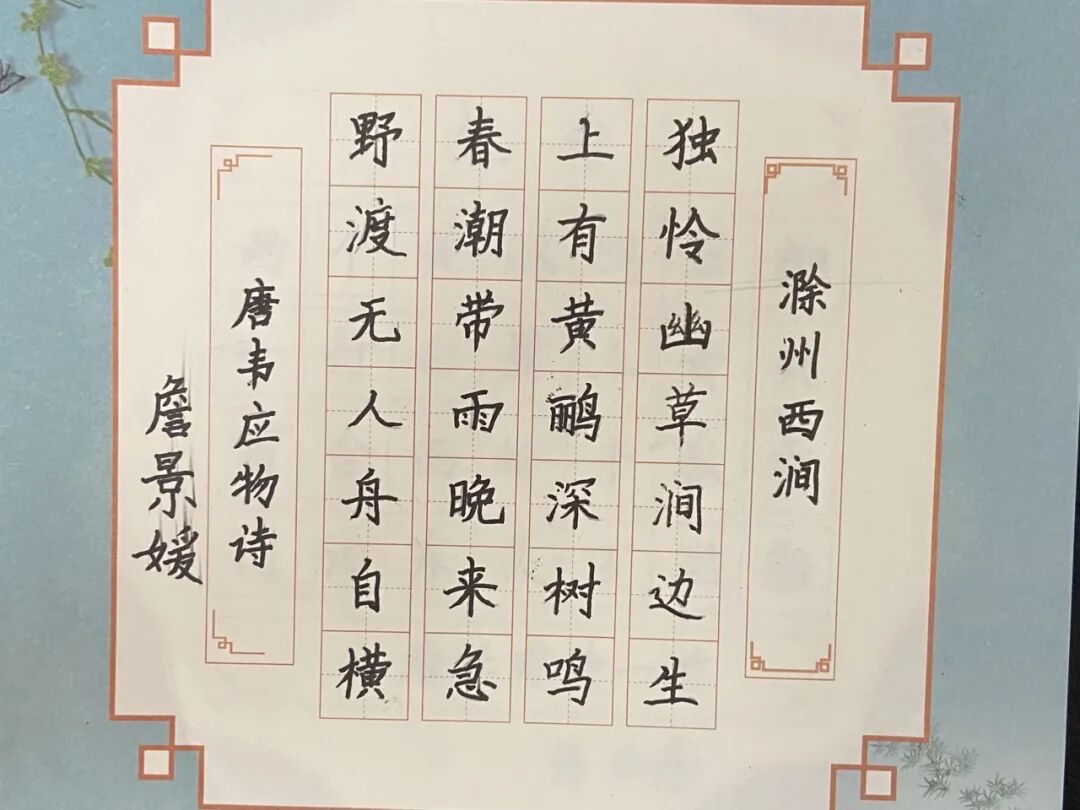 滁州西涧
独怜幽草涧边生
上有黄鹂深树鸣
春潮带雨晚来急
野渡无人舟自横
唐韦应物诗
詹景媛